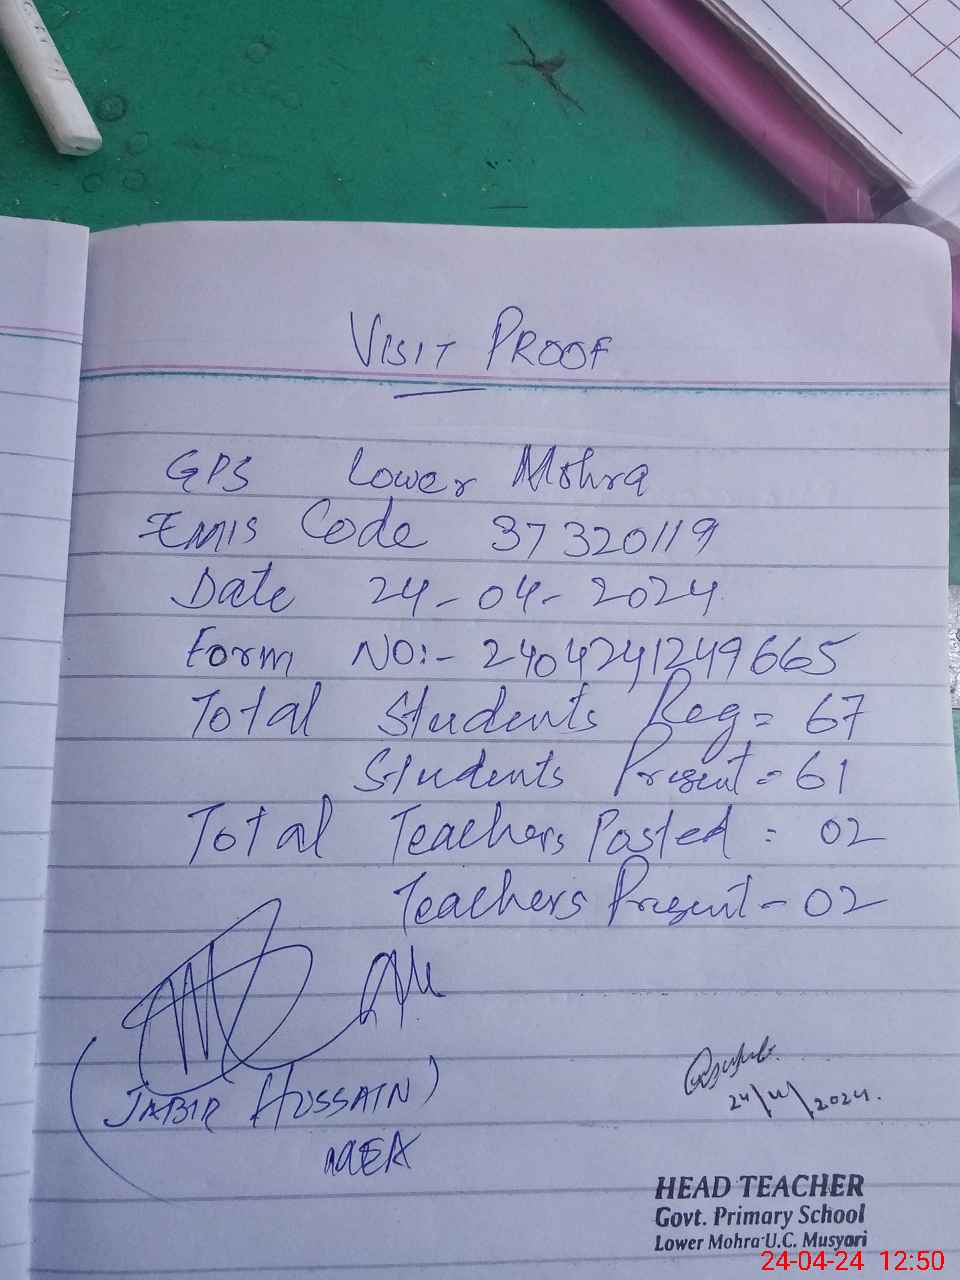 VISIT PROOF
GPS Lower Mohra
EMIS Code 37320119
Date 24-04-2024
Form NO:- 2404241249665
Total Students Reg = 67
Students Present = 61
Total Teachers Posted = 02
Teachers Present - 02
(JABIR HUSSAIN)
MEA
24/4/2024.
HEAD TEACHER
Govt. Primary School
Lower Mohra U.C. Musyari
24-04-24 12:50